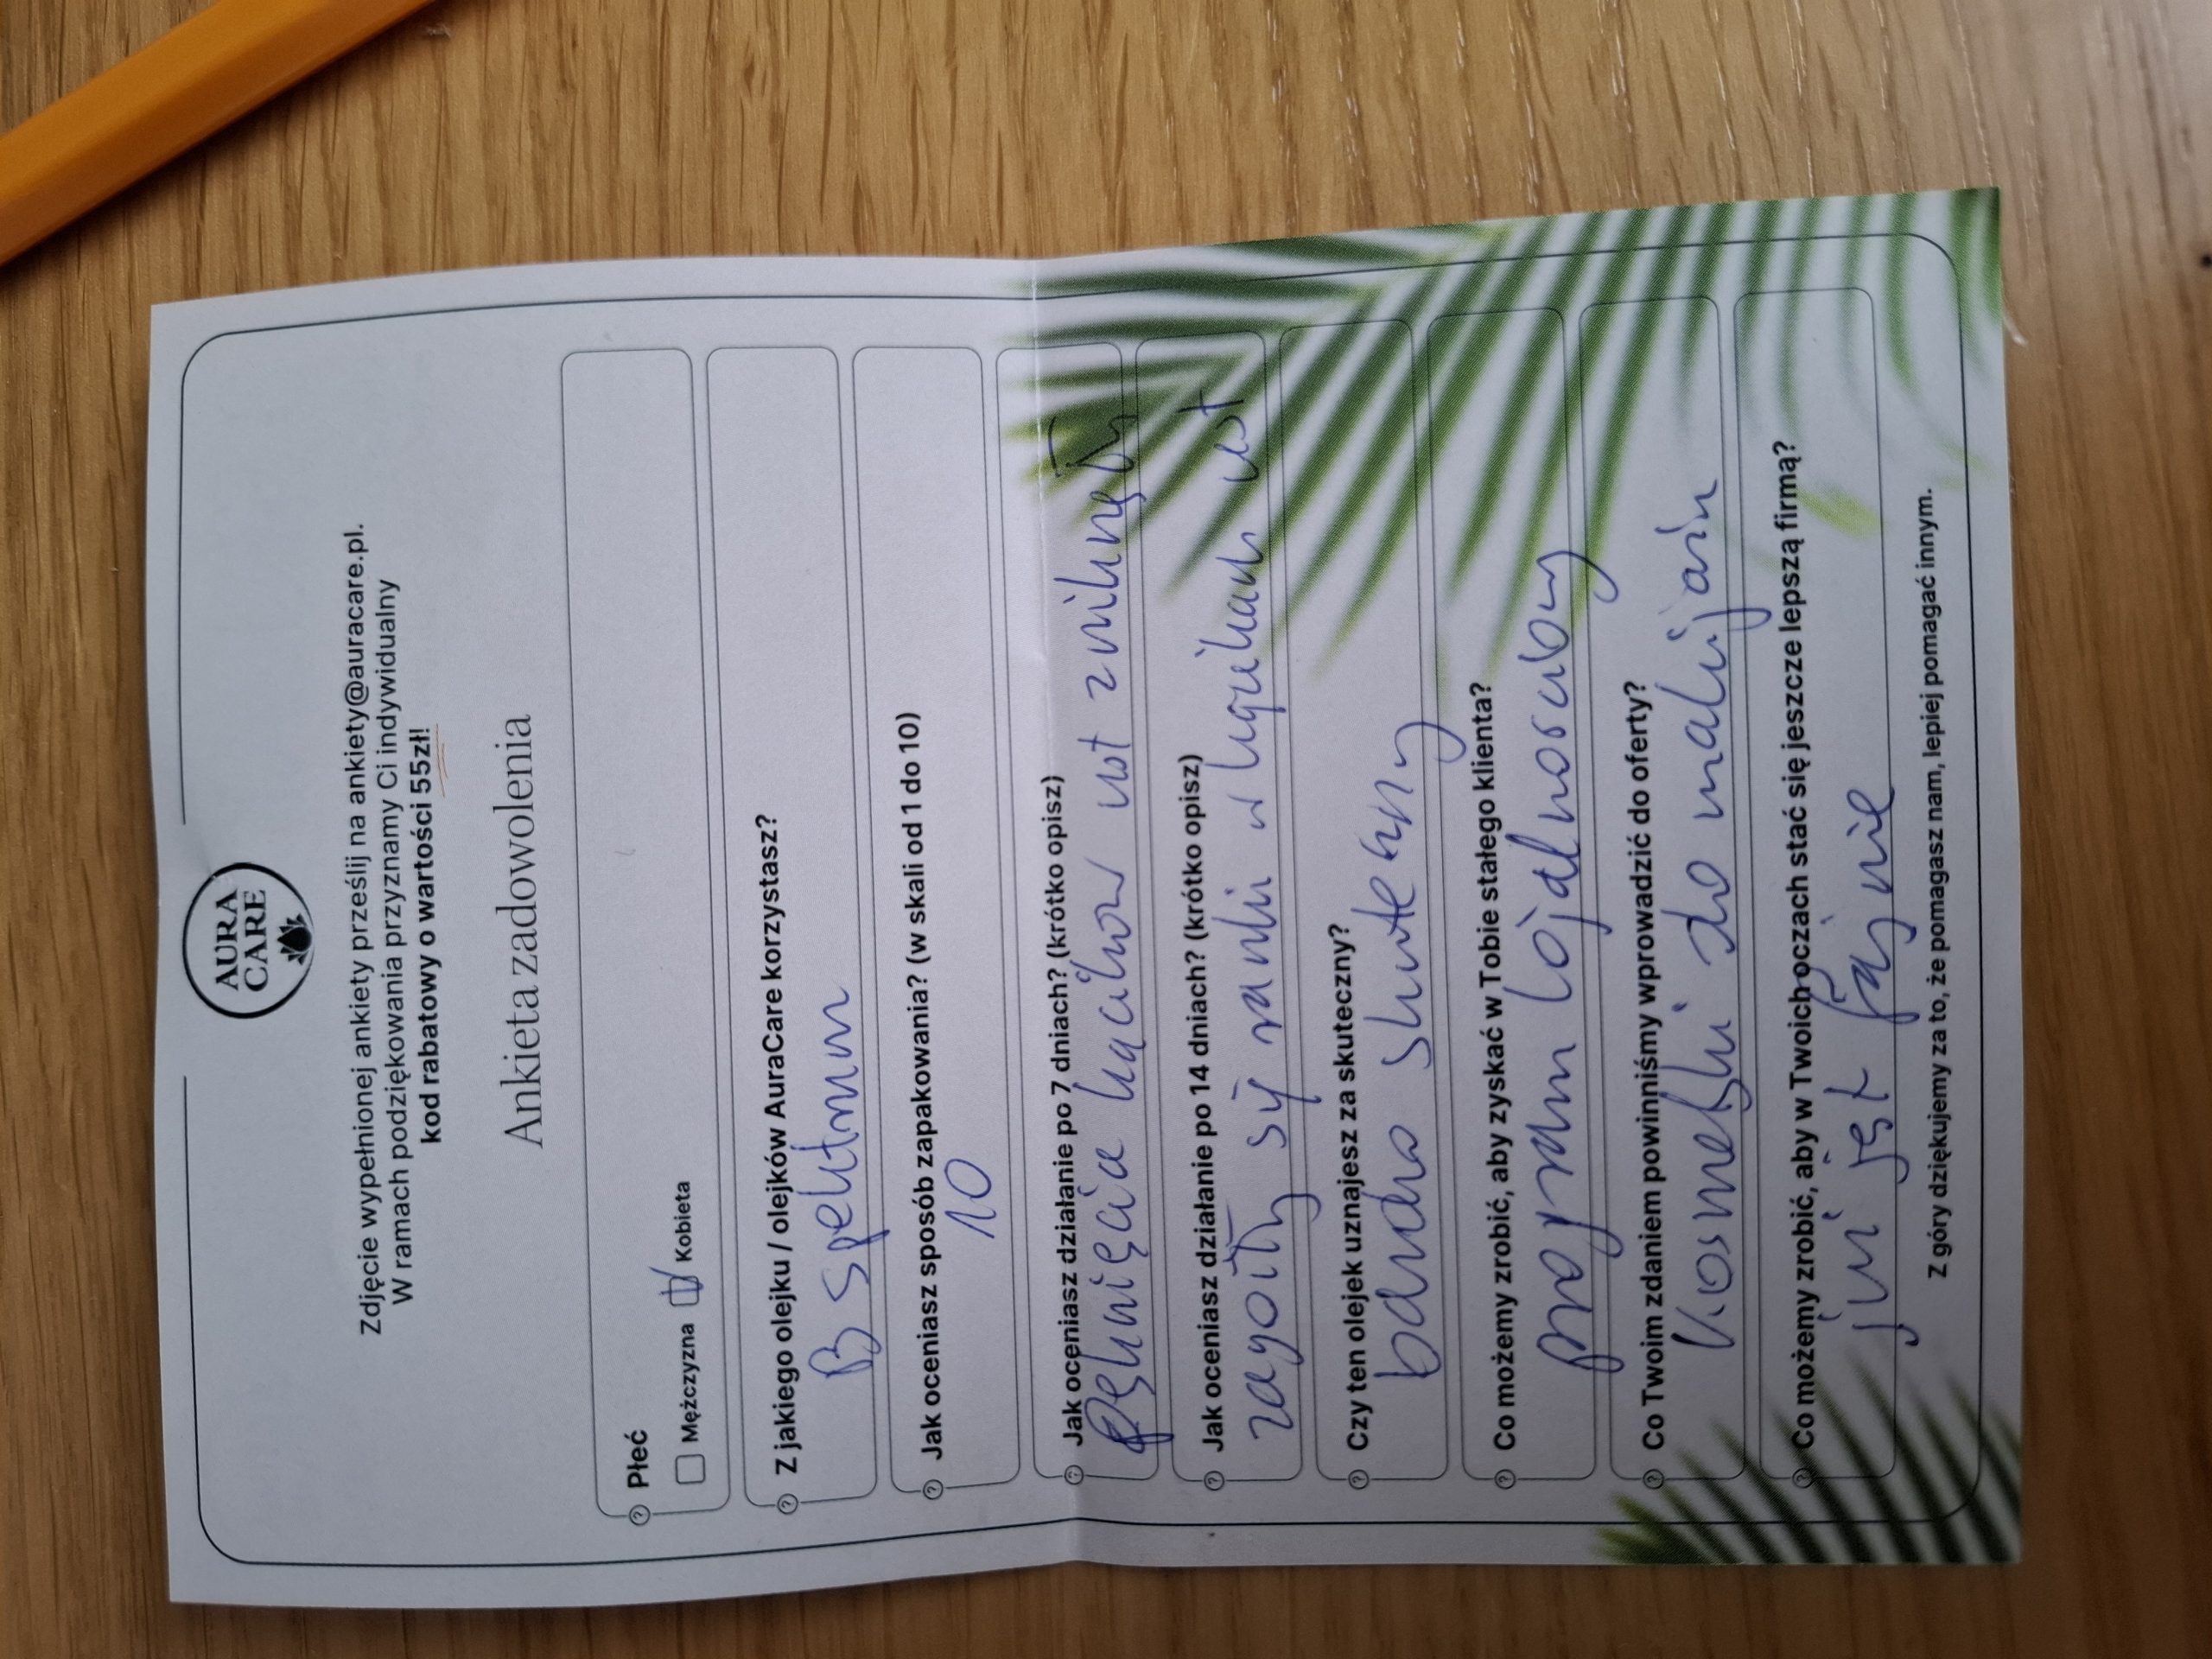 AURA
CARE
Zdjęcie wypełnionej ankiety prześlij na ankiety@auracare.pl.
W ramach podziękowania przyznamy Ci indywidualny
kod rabatowy o wartości 55zł!
Ankieta zadowolenia
Płeć
Mężczyzna Kobieta
Z jakiego olejku / olejków AuraCare korzystasz?
B spektrum
Jak oceniasz sposób zapakowania? (w skali od 1 do 10)
10
Jak oceniasz działanie po 7 dniach? (krótko opisz)
pęknięcia kącików ust zniknęły
Jak oceniasz działanie po 14 dniach? (krótko opisz)
zagoiły się ranki w kącikach ust
Czy ten olejek uznajesz za skuteczny?
bardzo skuteczny
Co możemy zrobić, aby zyskać w Tobie stałego klienta?
program lojalnosciowy
Co Twoim zdaniem powinniśmy wprowadzić do oferty?
Kosmetyki do makijażu
Co możemy zrobić, aby w Twoich oczach stać się jeszcze lepszą firmą?
już jest fajnie
Z góry dziękujemy za to, że pomagasz nam, lepiej pomagać innym.